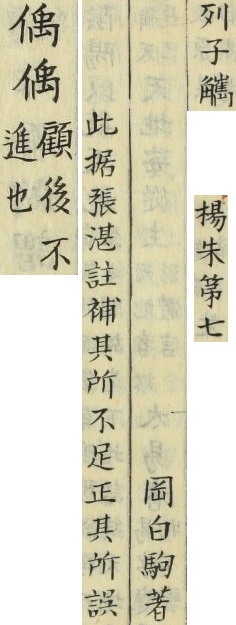 列子觿
楊朱第七
岡白駒著
此据張湛註補其所不足正其所誤
偊偊顧後不
進也